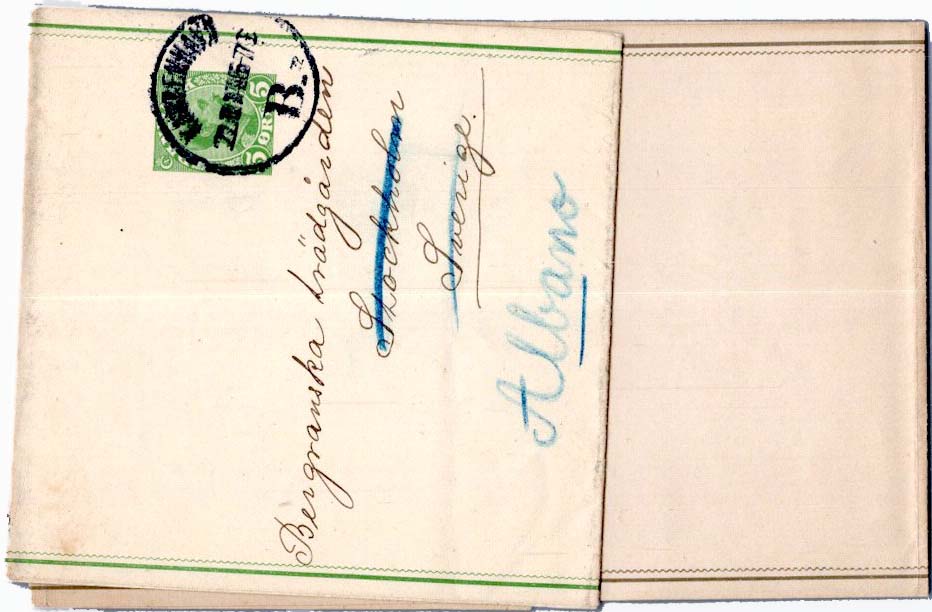 KJØBENHAVN
B.
5 ØRE 5
Bergranska trädgården
Stockholm
Sverige.
Albano